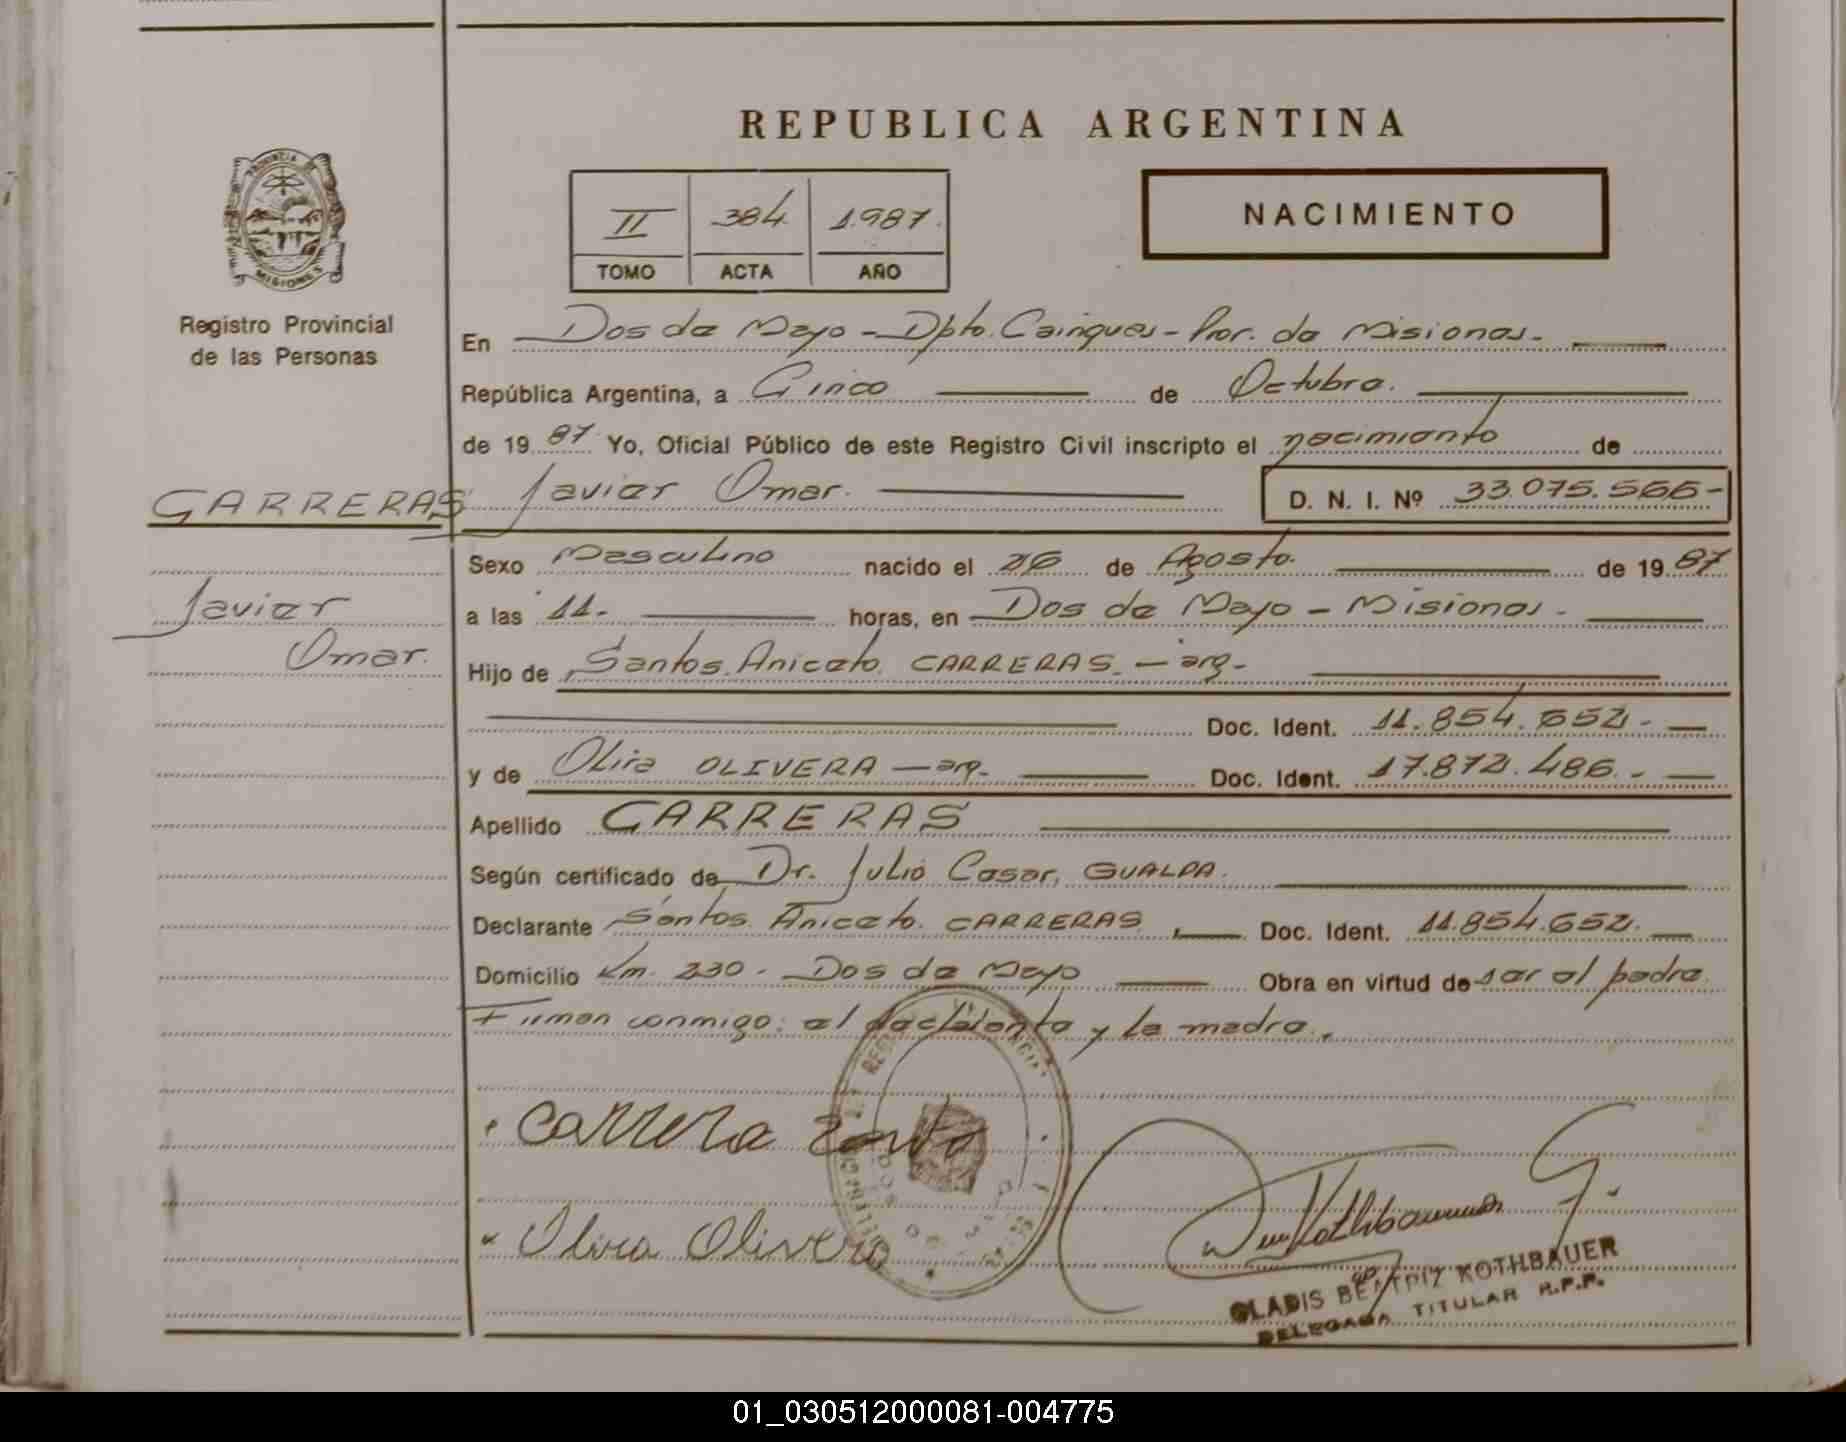 REPUBLICA ARGENTINA
PROVINCIA DE
MISIONES
Registro Provincial
de las Personas
II 384 1.987.
TOMO ACTA AÑO
NACIMIENTO
En Dos de Mayo - Dpto. Cainguas - Prov. de Misiones. -
República Argentina, a Cinco de Octubre.
de 19 87 Yo, Oficial Público de este Registro Civil inscripto el nacimiento de
CARRERAS Javier Omar. D. N. I. Nº 33.075.566-
Sexo Masculino nacido el 26 de Agosto. de 19 87
Javier
a las 11.- horas, en Dos de Mayo - Misiones -
Omar.
Hijo de Santos Aniceto CARRERAS - arg-
Doc. Ident. 11.854.652.-
y de Olira OLIVERA - arg- Doc. Ident. 17.872.486.-
Apellido CARRERAS
Según certificado de Dr. Julio Cesar GUALDA.
Declarante Santos Aniceto CARRERAS, Doc. Ident. 11.854.652.
Domicilio Km. 230 - Dos de Mayo Obra en virtud de ser el padre.
Firman conmigo: el declarante y la madre.
Carrera
Olivera
GLADIS BEATRIZ KOTHBAUER
DELEGADA TITULAR R.P.P.
01_030512000081-004775